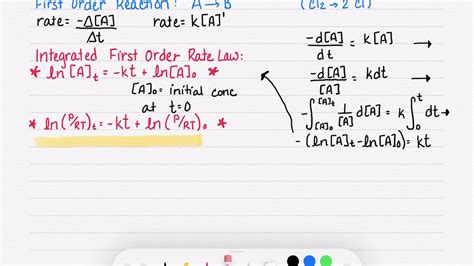 First Order Reaction: A → B
(Cl₂ → 2 Cl)
rate = -Δ[A]/Δt rate = k[A]'
Integrated First Order Rate Law:
* ln[A]ₜ = -kt + ln[A]₀ *
[A]₀ = initial conc
at t=0
* ln(P/RT)ₜ = -kt + ln(P/RT)₀ *
-d[A]/dt = k[A] →
-d[A]/[A] = kdt
-∫_{[A]₀}^{[A]ₜ} 1/[A] d[A] = k∫₀ᵗ dt →
-(ln[A]ₜ - ln[A]₀) = kt